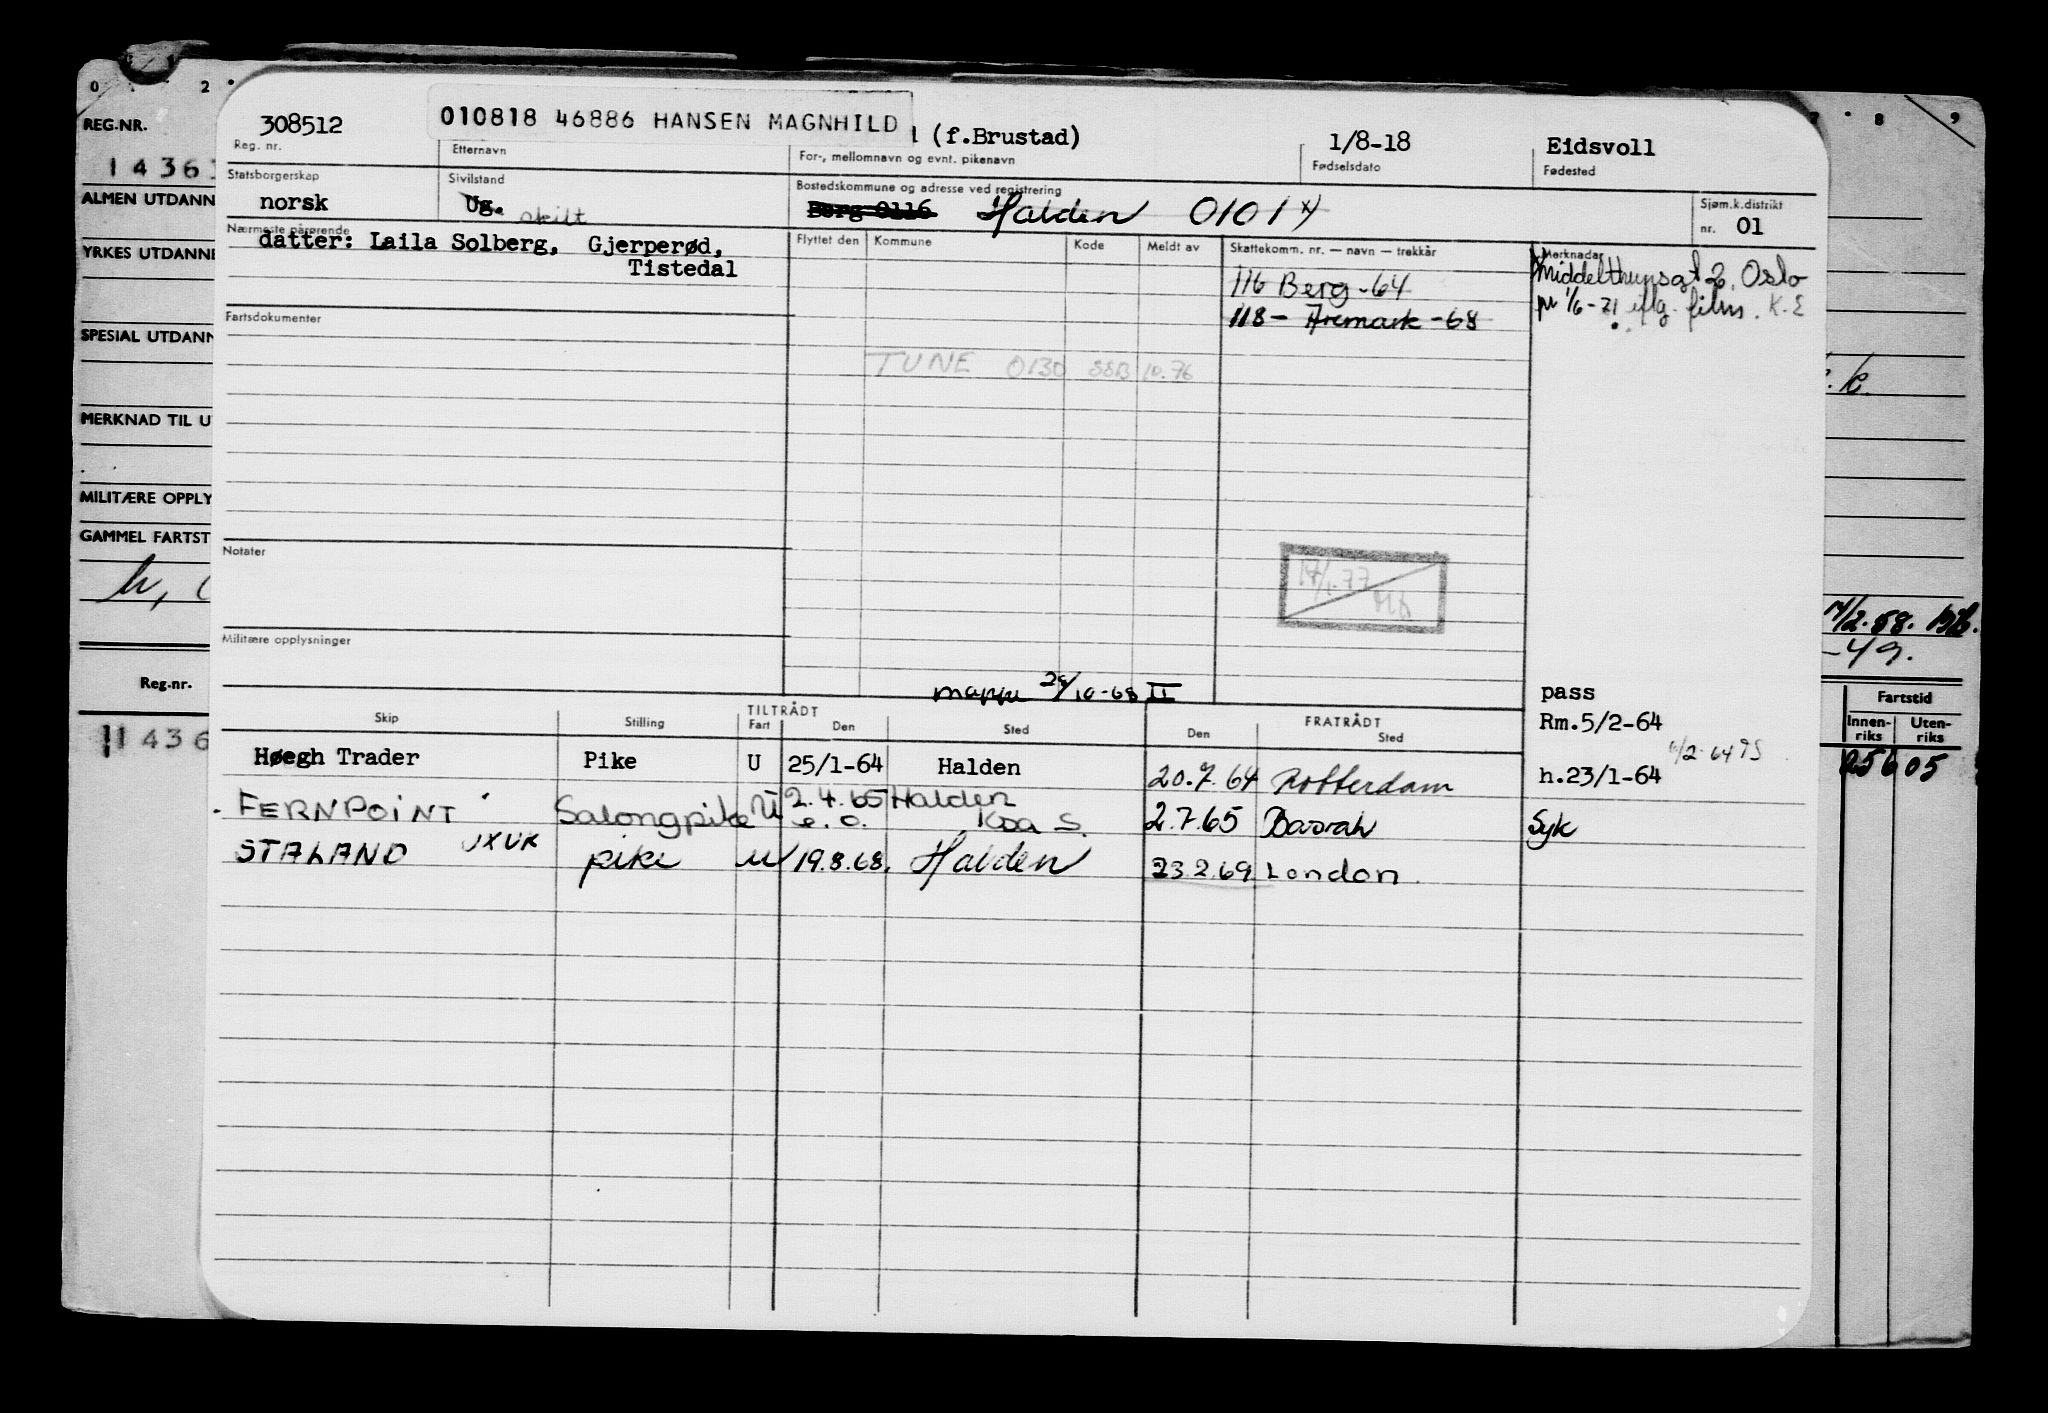 0 2 7 8 9
REG.NR.
1436
ALMEN UTDANN
YRKES UTDANNE
SPESIAL UTDANN
MERKNAD TIL U
MILITÆRE OPPLY
GAMMEL FARTST
Reg.nr.
1436
308512 010818 46886 HANSEN MAGNHILD (f.Brustad) 1/8-18 Eidsvoll
Reg. nr. Etternavn For-, mellomnavn og evnt. pikenavn Fødselsdato Fødested
Statsborgerskap Sivilstand Bostedskommune og adresse ved registrering Sjøm.k.distrikt
norsk Ug. skilt Berg 0116 Halden 0101 x) nr. 01
Nærmeste pårørende Flyttet den Kommune Kode Meldt av Skattekomm. nr. — navn — trekkår Merknader
datter: Laila Solberg, Gjerperød,
Tistedal
116 Berg -64
118 - Aremark -68
Middelthunsgt 2, Oslo
pr 1/6-71 iflg. film. K.E
Fartsdokumenter
TUNE 0130 SSB 10.76
Notater
14/1-77
Militære opplysninger
mappe 29/10-68 II
pass
Rm.5/2-64
h.23/1-64
TILTRÅDT FRATRÅDT
Skip Stilling Fart Den Sted Den Sted
Høegh Trader Pike U 25/1-64 Halden 20.7.64 Rotterdam
FERNPOINT Salongpike U 2.4.65 Halden 2.7.65 Basrah Syk
e.o. Koa S.
STALAND JXUK pike U 19.8.68. Halden 23.2.69 London
k.
/2.58.
-49.
Fartstid
Innenriks Utenriks
05